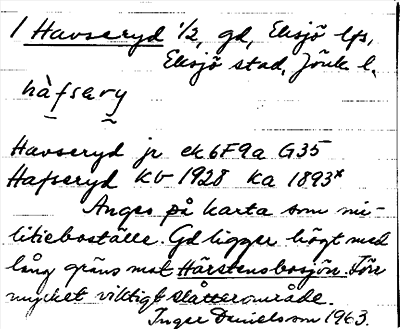 1 Havseryd ½, gd, Eksjö lfs,
Eksjö stad, Jönk l.
hàfsery
Havseryd jr ek 6F9a G35
Hafseryd KV 1928 Ka 1893*
Anges på karta som mi-
litieboställe. Gd ligger högt med
lång gräns mot Härstensbosjön. Förr
mycket viktigt slåtterområde.
Inger Danielsson 1963.